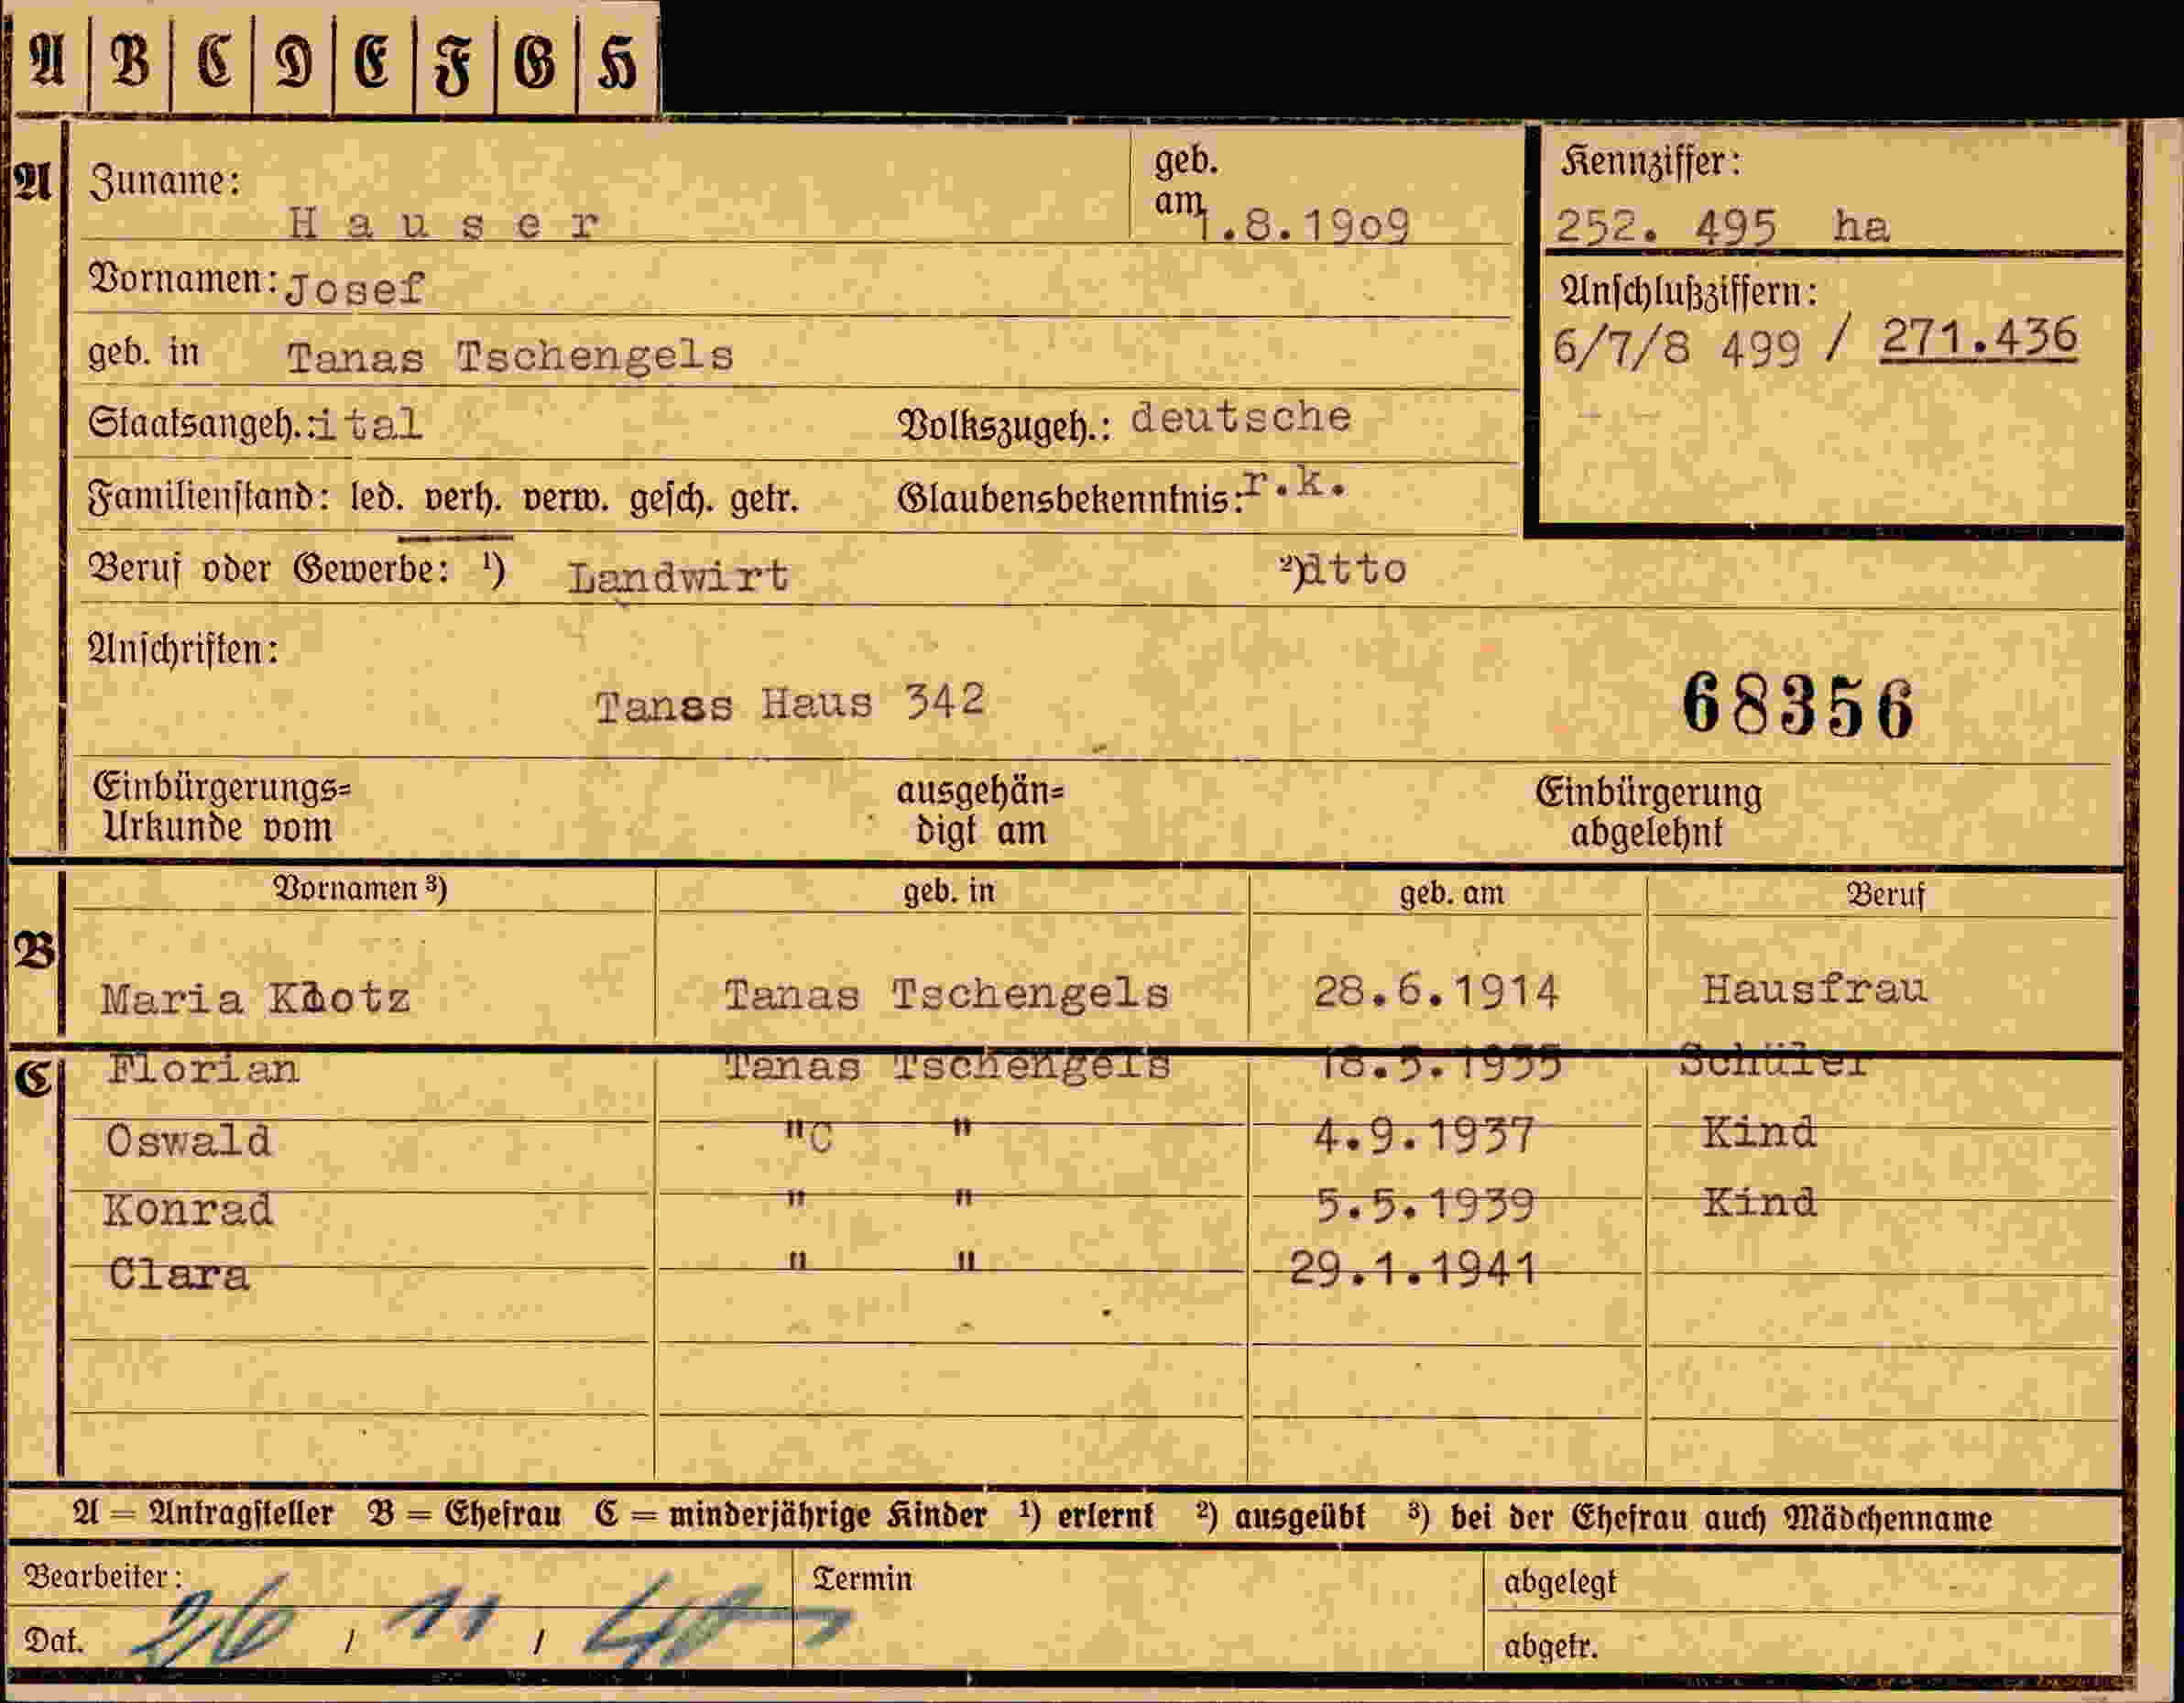 A B C D E F G H
A Zuname: Hauser geb. am 1.8.1909 Kennziffer: 252. 495 ha
Vornamen: Josef
Anschlußziffern: 6/7/8 499 / 271.436
geb. in Tanas Tschengels
Staatsangeh.: ital Volkszugeh.: deutsche
Familienstand: led. verh. verw. gesch. getr. Glaubensbekenntnis: r.k.
Beruf oder Gewerbe: ¹) Landwirt ²) dtto
Anschriften:
Tanas Haus 342 68356
Einbürgerungs= Urkunde vom ausgehän= digt am Einbürgerung abgelehnt
Vornamen ³) geb. in geb. am Beruf
B Maria Tanas Tschengels 28.6.1914 Hausfrau
C Florian Tanas Tschengels Schüler
Oswald "C " 4.9.1937 Kind
Konrad " " 5.5.1939 Kind
Clara " " 29.1.1941
A = Antragsteller B = Ehefrau C = minderjährige Kinder ¹) erlernt ²) ausgeübt ³) bei der Ehefrau auch Mädchenname
Bearbeiter: Termin abgelegt
Dat. 26 / 11 / 40 abgetr.